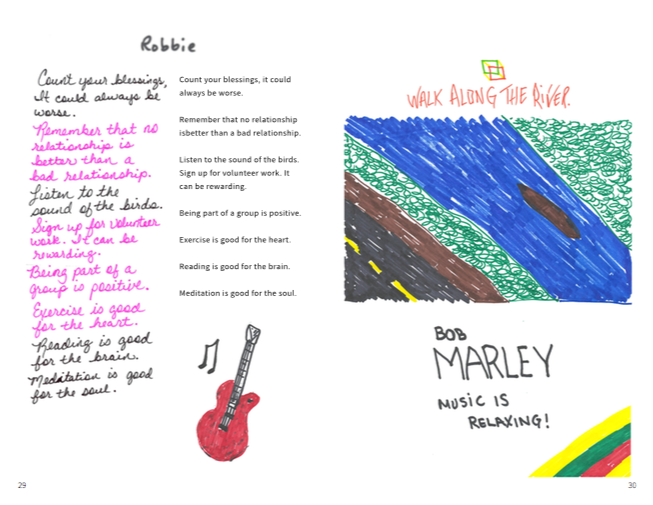 Robbie
Count your blessings,
It could always be
worse.
Remember that no
relationship is
better than a
bad relationship.
Listen to the
sound of the birds.
Sign up for volunteer
work. It can be
rewarding.
Being part of a
group is positive.
Exercise is good
for the heart.
Reading is good
for the brain.
Meditation is good
for the soul.
Count your blessings, it could
always be worse.
Remember that no relationship
isbetter than a bad relationship.
Listen to the sound of the birds.
Sign up for volunteer work. It
can be rewarding.
Being part of a group is positive.
Exercise is good for the heart.
Reading is good for the brain.
Meditation is good for the soul.
29
WALK ALONG THE RIVER.
BOB
MARLEY
MUSIC IS
RELAXING!
30